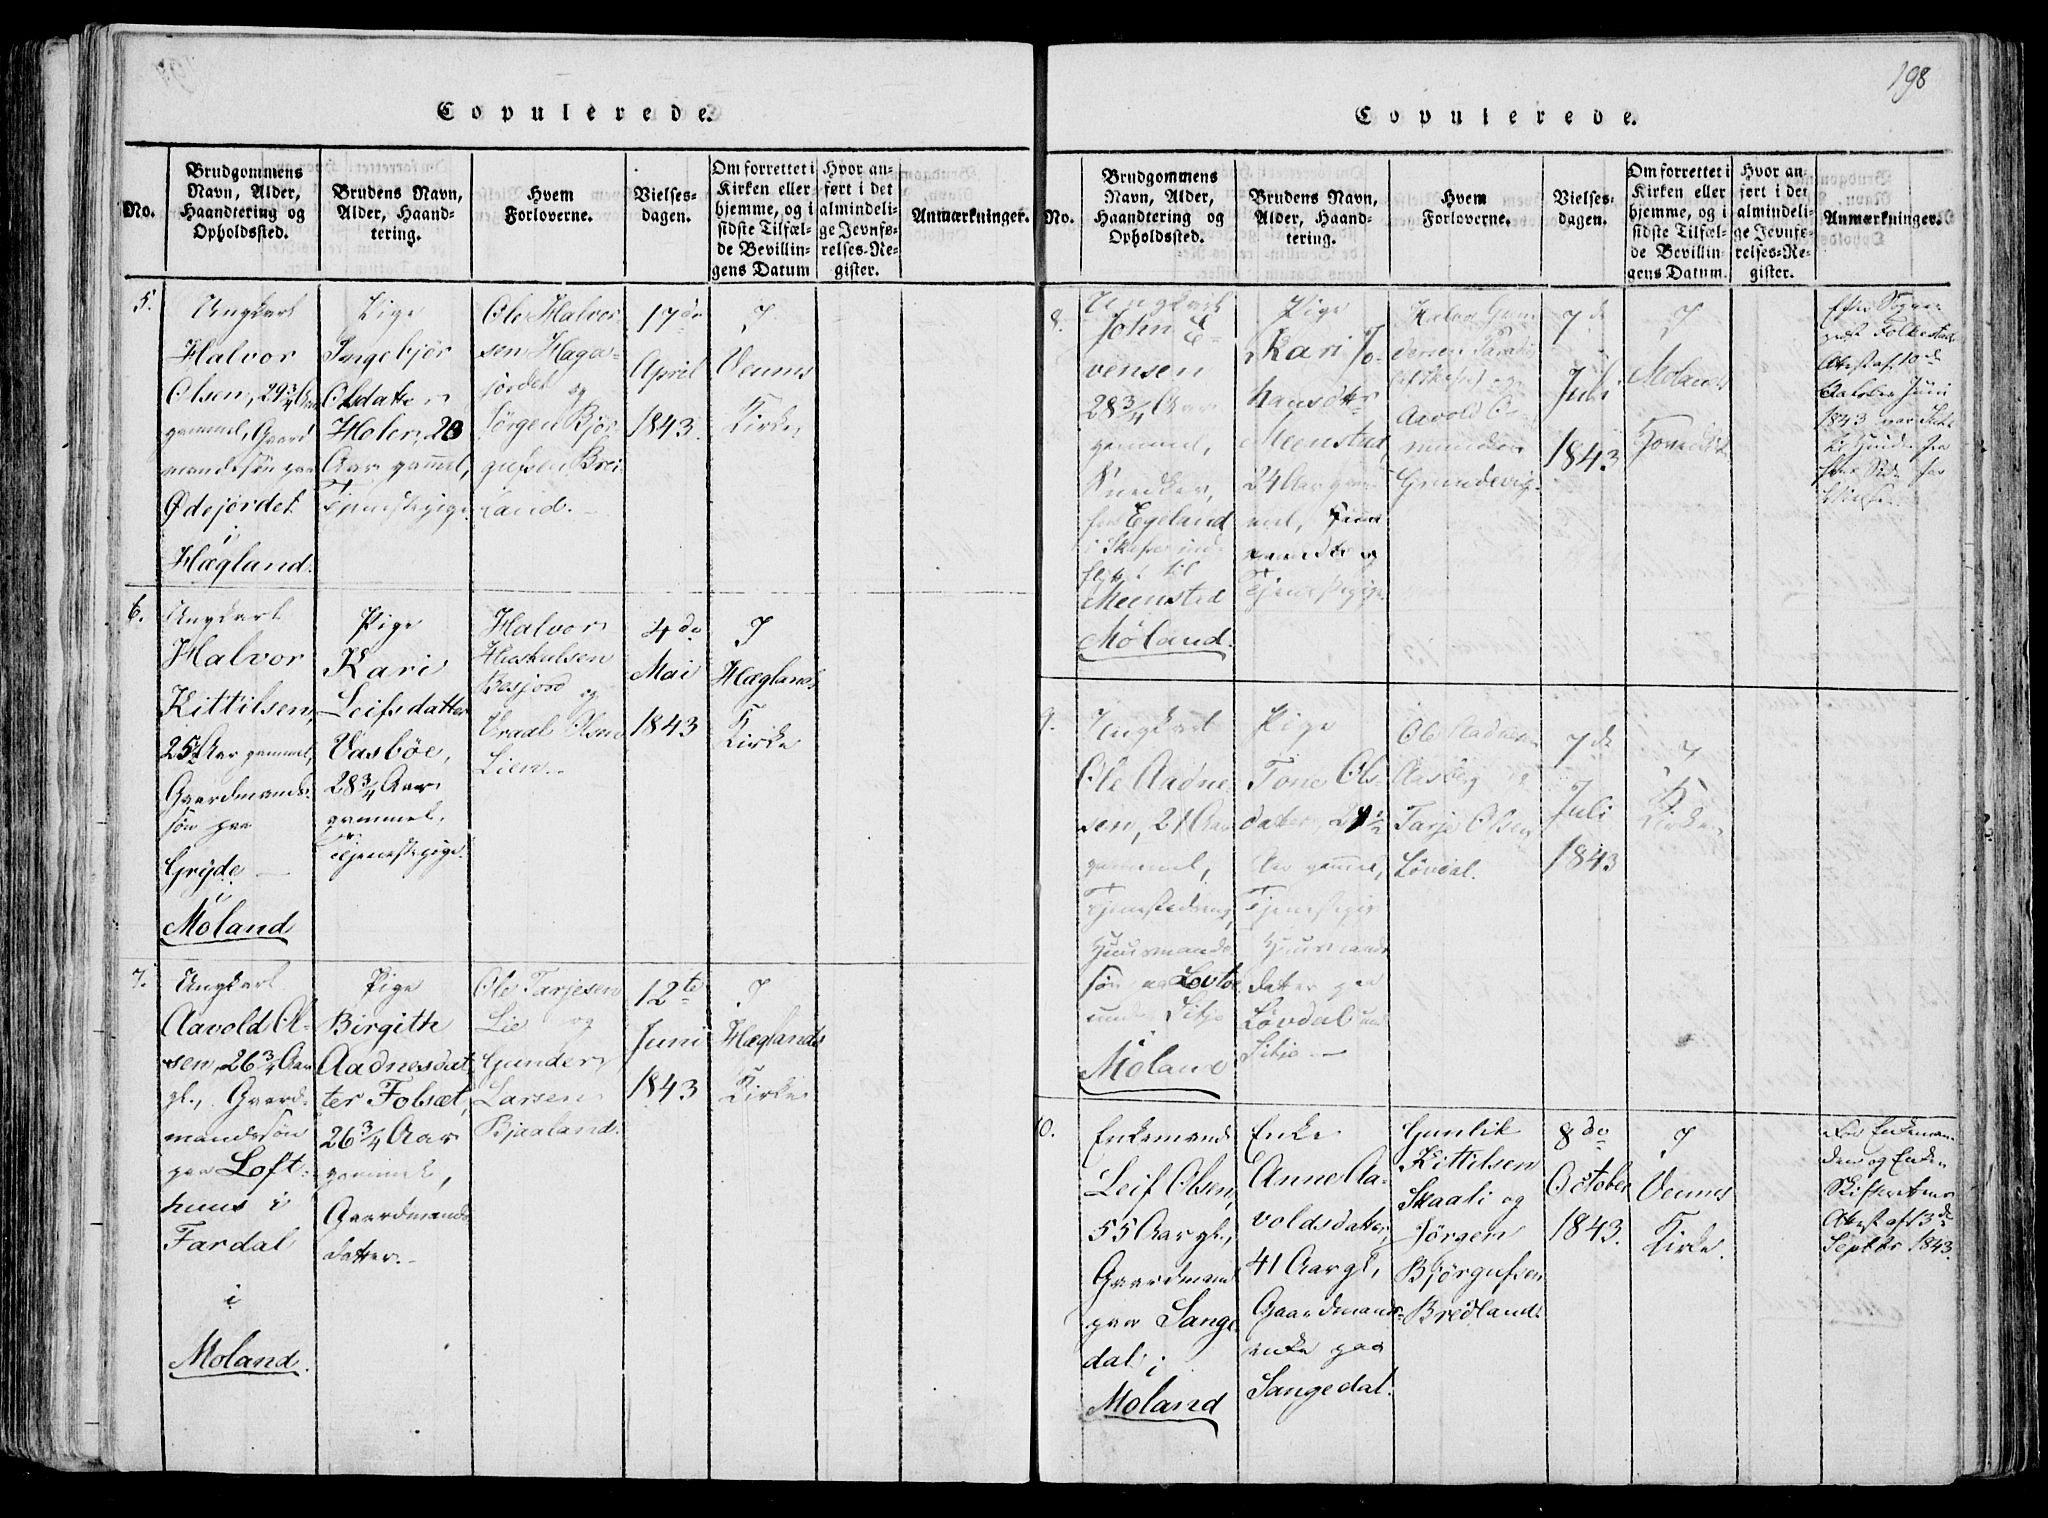 198
Copulerede.
No.
Brudgommens
Navn, Alder,
Haandtering og
Opholdssted.
Brudens Navn,
Alder, Haand-
tering.
Hvem
Forloverne.
Vielses-
dagen.
Om forrettet i
Kirken eller
hjemme, og i
sidste Tilfæl-
de Bevillin-
gens Datum
Hvor an-
ført i det
almindeli-
ge Jevnfø-
relses-Re-
gister.
Anmærkninger.
5.
Ungkarl
Halvor
Olsen, 29 3/4 Aar
gammel, Gaard
mandssøn paa
Ødejordet
i
Hægland.
Pige
Ingebjør
Olsdatter
Holen, 28
Aar gamel,
Tjenestepige.
Ole Halvor
sen Haga-
jordet og
Jørgen Bjør
gufsen Brei
land.
17de
April
1843.
I
Veums
Kirke
6.
Ungkarl
Halvor
Kittilsen,
25 Aar gammel,
Gaardmands-
søn paa
Gryde
i
Moland
Pige
Kari
Leifsdatter
Vasbøe,
28 3/4 Aar
gammel,
Tjenestepige.
Halvor
Besjord og
Vraal Olsen
Lien.
4de
Mai
1843
I
Hæglands
Kirke
7.
Ungkarl
Aavold A-
sen, 26 3/4 Aar
gl., Gaard-
mandssøn
paa Loft-
huus i
Fardal
i
Moland.
Pige
Birgith
Aadnesdat
ter Folsæt,
26 3/4 Aar
gammel,
Gaardmands
datter.
Ole Tarjesen
Lie og
Gunder
Larsen
Bjaaland.
12te
Juni
1843
I
Hæglands
Kirke
Copulerede.
No.
Brudgommens
Navn, Alder,
Haandtering og
Opholdssted.
Brudens Navn,
Alder, Haand-
tering.
Hvem
Forloverne.
Vielses-
dagen.
Om forrettet i
Kirken eller
hjemme, og i
sidste Tilfæl-
de Bevillin-
gens Datum.
Hvor an-
ført i det
almindeli-
ge Jevnfø-
relses-Re-
gister.
Anmærkninger.
8.
Ungkarl
John E-
vensen
28 3/4 Aar
gammel,
Snedker,
fra Egeland
i
til
Meensted
Møland.
Pige
Kari Jo-
hansdtr
Meensted
24 Aar gam
mel,
Tjenestepige.
og
Aavold
Grundevig.
7de
Juli
1843
I
Molands
1843
9.
Ungkarl
Ole Aadne-
sen, 21 Aar
gammel,
Tjenestedreng,
Huusmands
søn
under Sitje
Moland
Pige
Tone Ols-
datter,
Aar gamel,
Tjenestepige
Huusmands
datter paa
Løvdal und
Sitje.
Ole Aadnesen
Aasberg og
Tarje Olsen
Løvdal.
7de
Juli
1843
I
Kirke
10.
Enkemand
Leif Olsen,
55 Aar gl.,
Gaardmand
paa Sange-
dal i
Moland
Enke
Anne Aa-
voldsdatter,
41 Aar gl,
Gaardmands-
enke paa
Sangedal.
Gunlik
Kittilsen
Skaali og
Jørgen
Bjørgufsen
Bredland.
8de
October
1843.
I
Veums
Kirke.
For Enkeman
den og Enken
Attest af 13de
Septbr 1843.